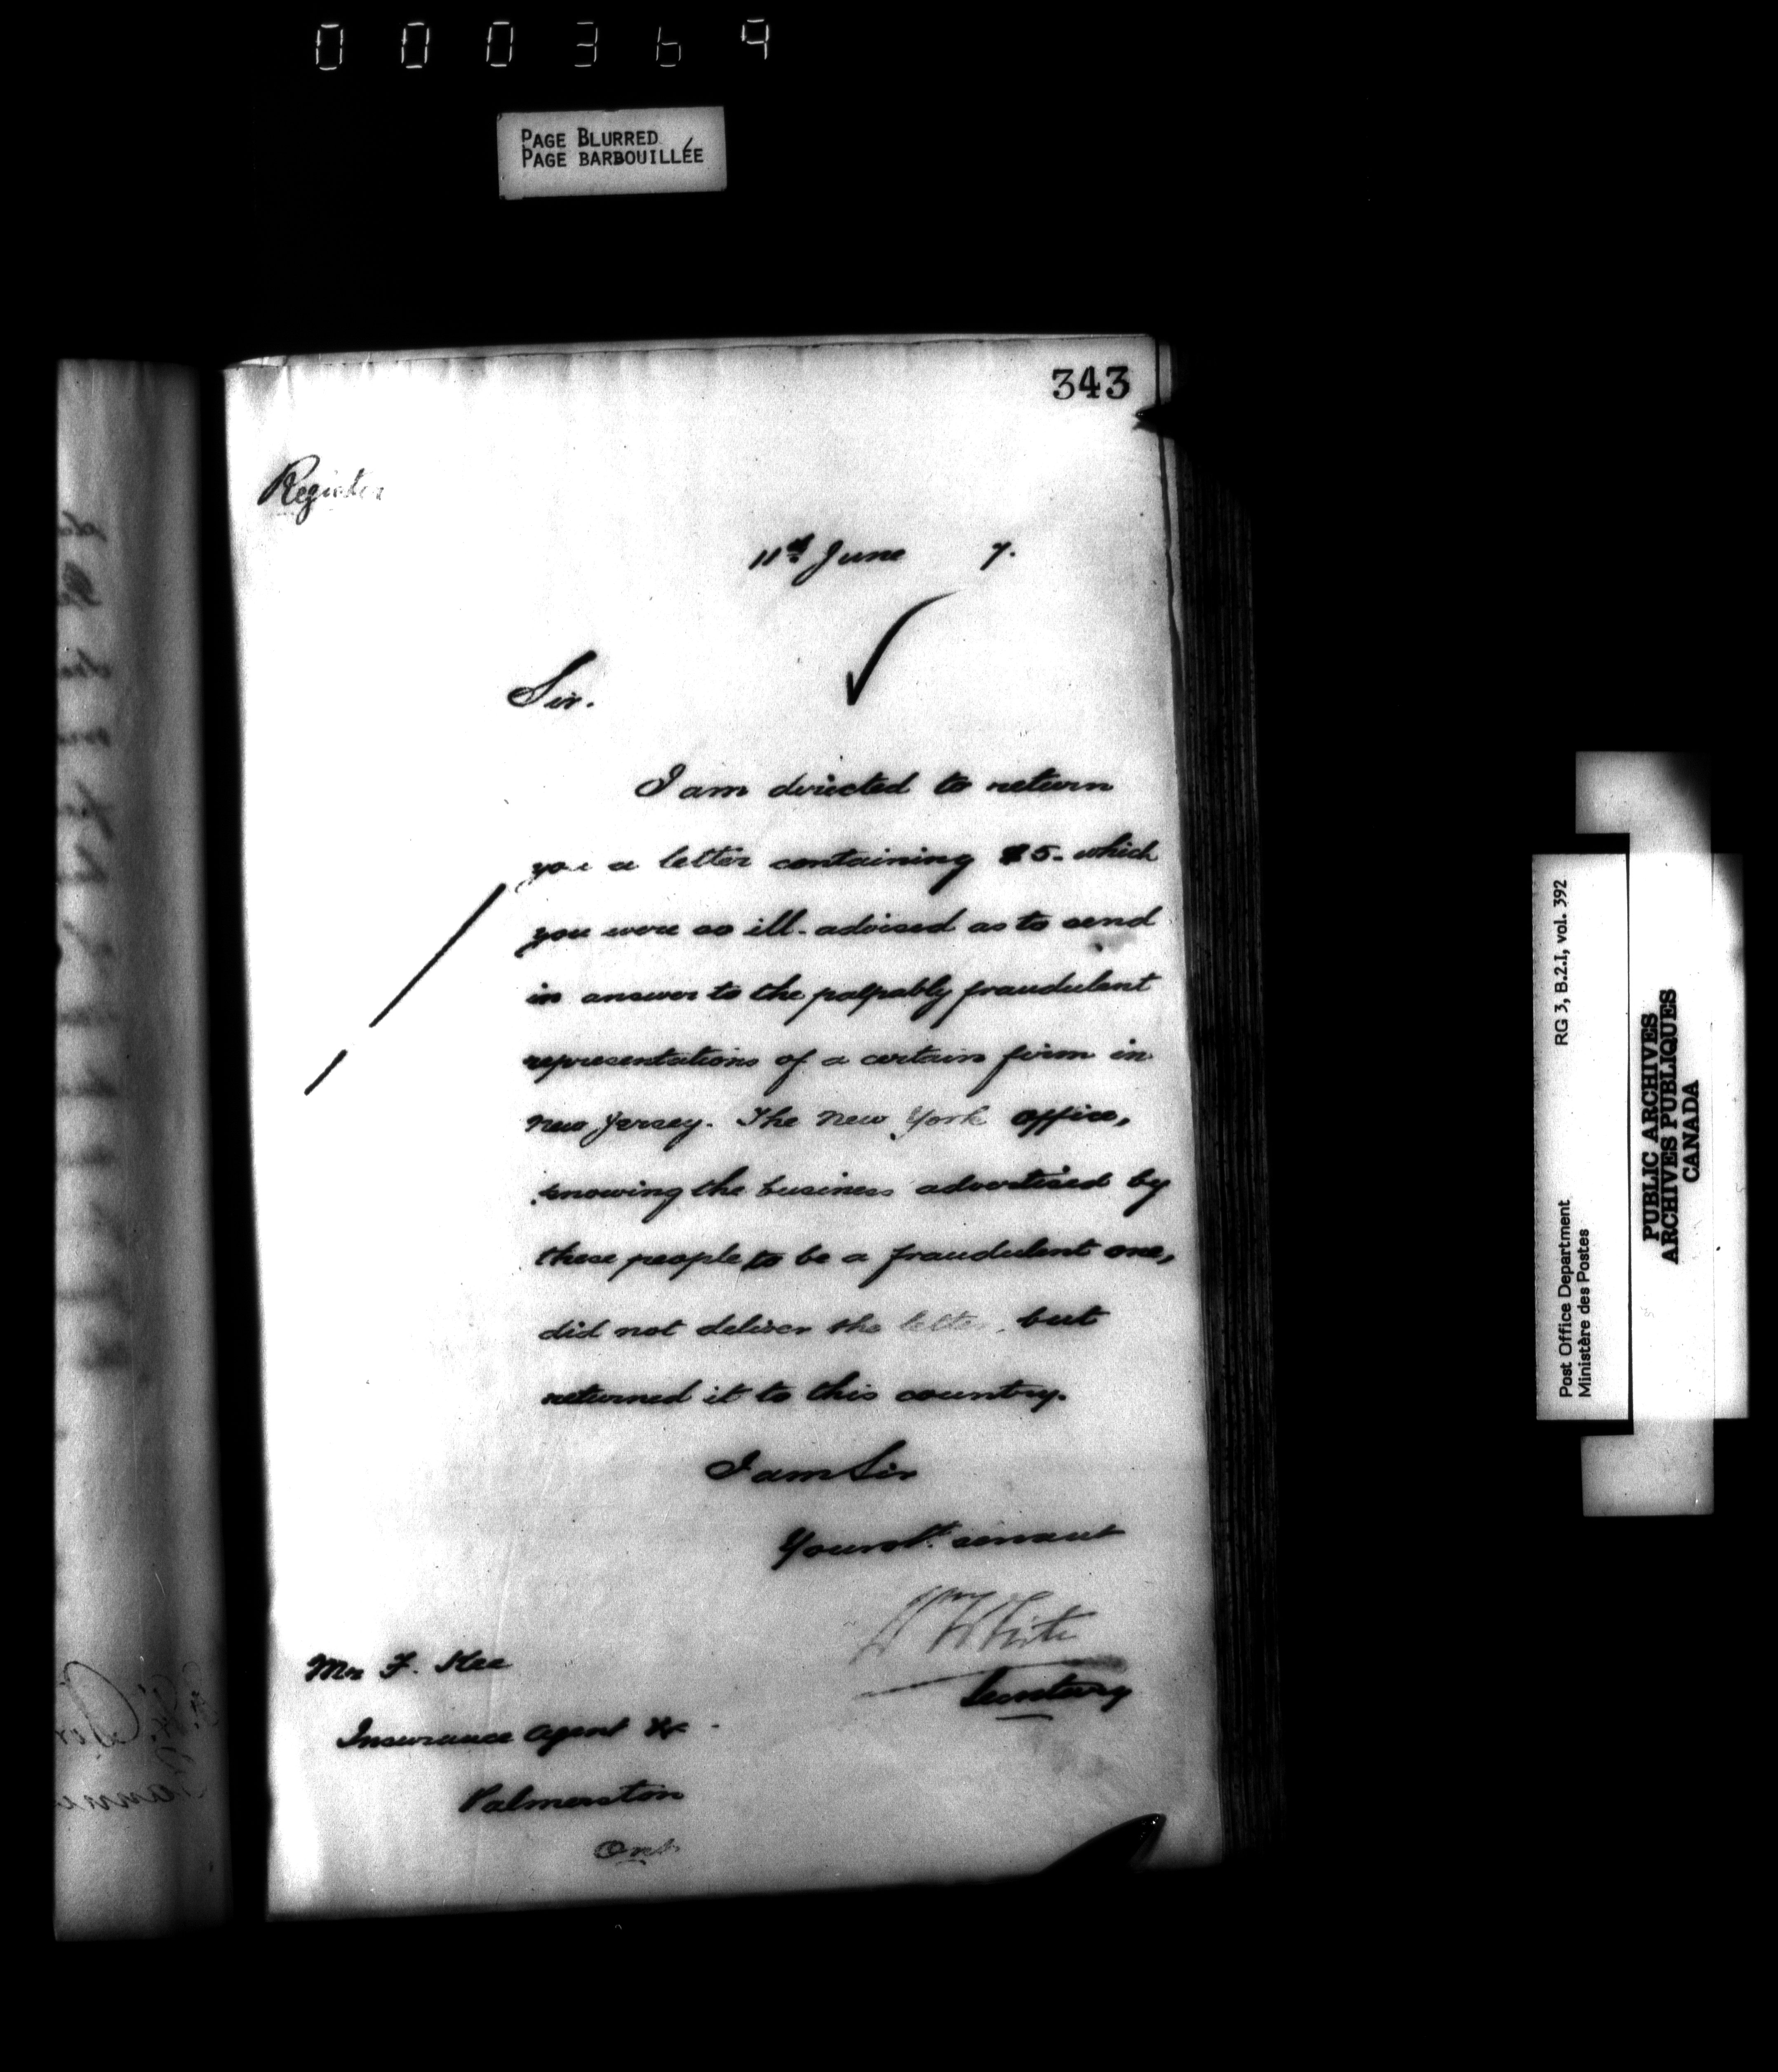 000369
PAGE BLURRED
PAGE BARBOUILLÉE
343
Register
11th June 7.
Sir.
I am directed to return
you a letter containing $5. which
you were so ill-advised as to send
in answer to the palpably fraudulent
representations of a certain firm in
New Jersey. The New York office,
knowing the business advertised by
these people to be a fraudulent one,
did not deliver the letter, but
returned it to this country.
I am Sir
Your obt. servant
Wm White
Secretary
Mr F. Kee
Insurance Agent &c
Palmerston
Ont
RG 3, B.2.I, vol. 392
Post Office Department
Ministère des Postes
PUBLIC ARCHIVES
ARCHIVES PUBLIQUES
CANADA